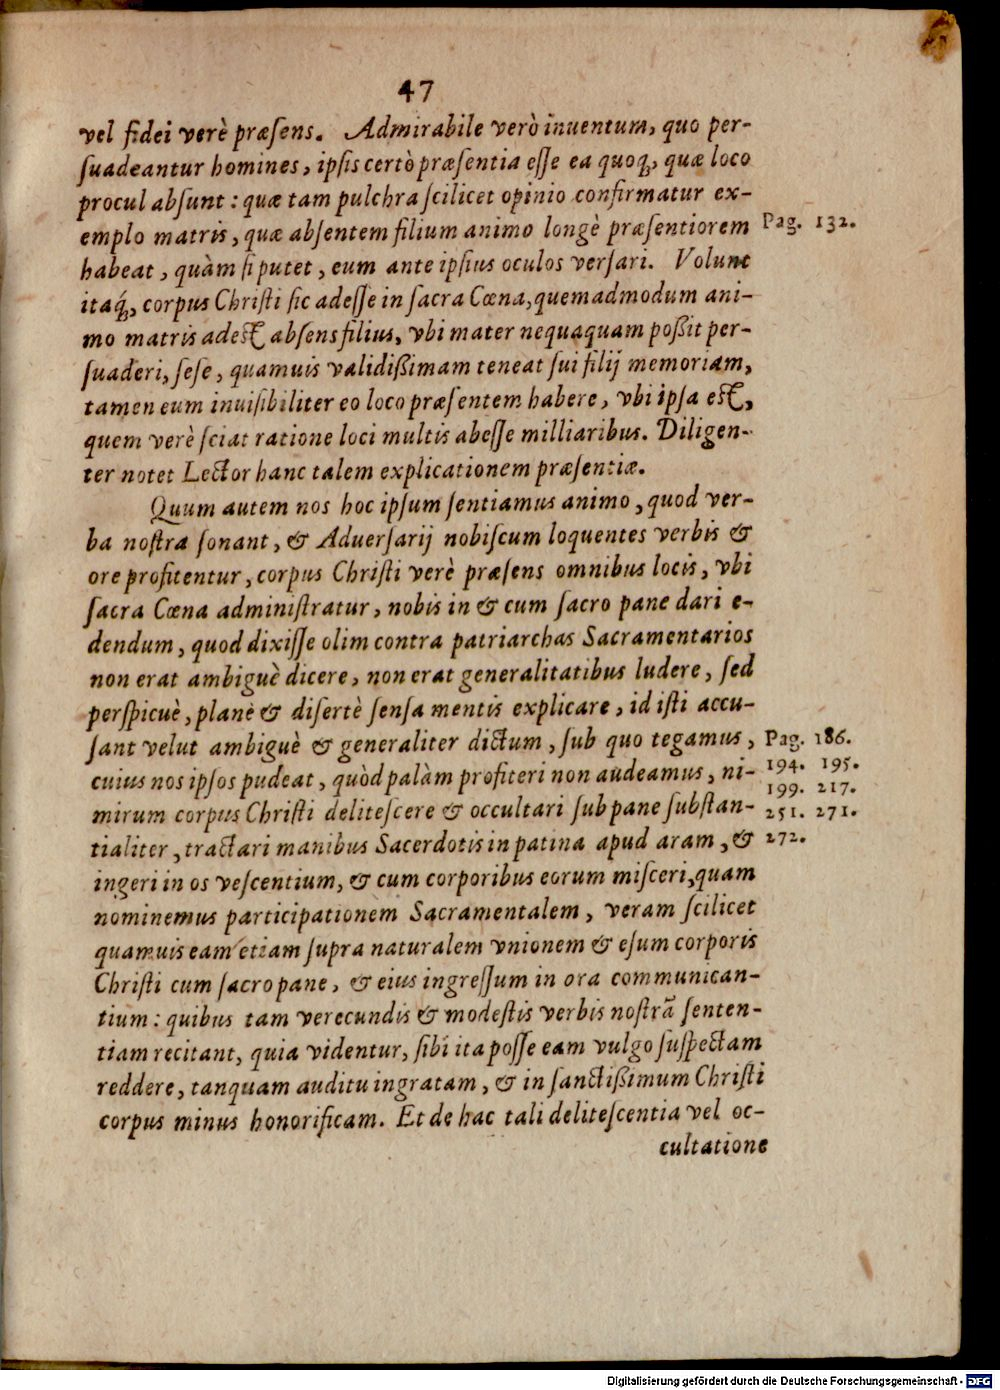 47
vel fidei verè præsens. Admirabile verò inuentum, quo per-
suadeantur homines, ipsis certò præsentia esse ea quoq́, quæ loco
procul absunt: quæ tam pulchra scilicet opinio confirmatur ex-
emplo matris, quæ absentem filium animo longè præsentiorem
Pag. 132.
habeat, quàm si putet, eum ante ipsius oculos versari. Volunt
itaq́, corpus Christi sic adesse in sacra Cœna, quemadmodum ani-
mo matris adest absens filius, vbi mater nequaquam poßit per-
suaderi, sese, quamuis validißimam teneat sui filij memoriam,
tamen eum inuisibiliter eo loco præsentem habere, vbi ipsa est,
quem verè sciat ratione loci multis abesse milliaribus. Diligen-
ter notet Lector hanc talem explicationem præsentiæ.
Quum autem nos hoc ipsum sentiamus animo, quod ver-
ba nostra sonant, & Aduersarij nobiscum loquentes verbis &
ore profitentur, corpus Christi verè præsens omnibus locis, vbi
sacra Cœna administratur, nobis in & cum sacro pane dari e-
dendum, quod dixisse olim contra patriarchas Sacramentarios
non erat ambiguè dicere, non erat generalitatibus ludere, sed
perspicuè, planè & disertè sensa mentis explicare, id isti accu-
sant velut ambiguè & generaliter dictum, sub quo tegamus,
Pag. 186.
cuius nos ipsos pudeat, quòd palàm profiteri non audeamus, ni-
194. 195.
199. 217.
mirum corpus Christi delitescere & occultari sub pane substan-
251. 271.
tialiter, tractari manibus Sacerdotis in patina apud aram, &
272.
ingeri in os vescentium, & cum corporibus eorum misceri, quam
nominemus participationem Sacramentalem, veram scilicet
quamuis eam etiam supra naturalem vnionem & esum corporis
Christi cum sacro pane, & eius ingressum in ora communican-
tium: quibus tam verecundis & modestis verbis nostrã senten-
tiam recitant, quia videntur, sibi ita posse eam vulgo suspectam
reddere, tanquam auditu ingratam, & in sanctißimum Christi
corpus minus honorificam. Et de hac tali delitescentia vel oc-
cultatione
Digitalisierung gefördert durch die Deutsche Forschungsgemeinschaft - DFG